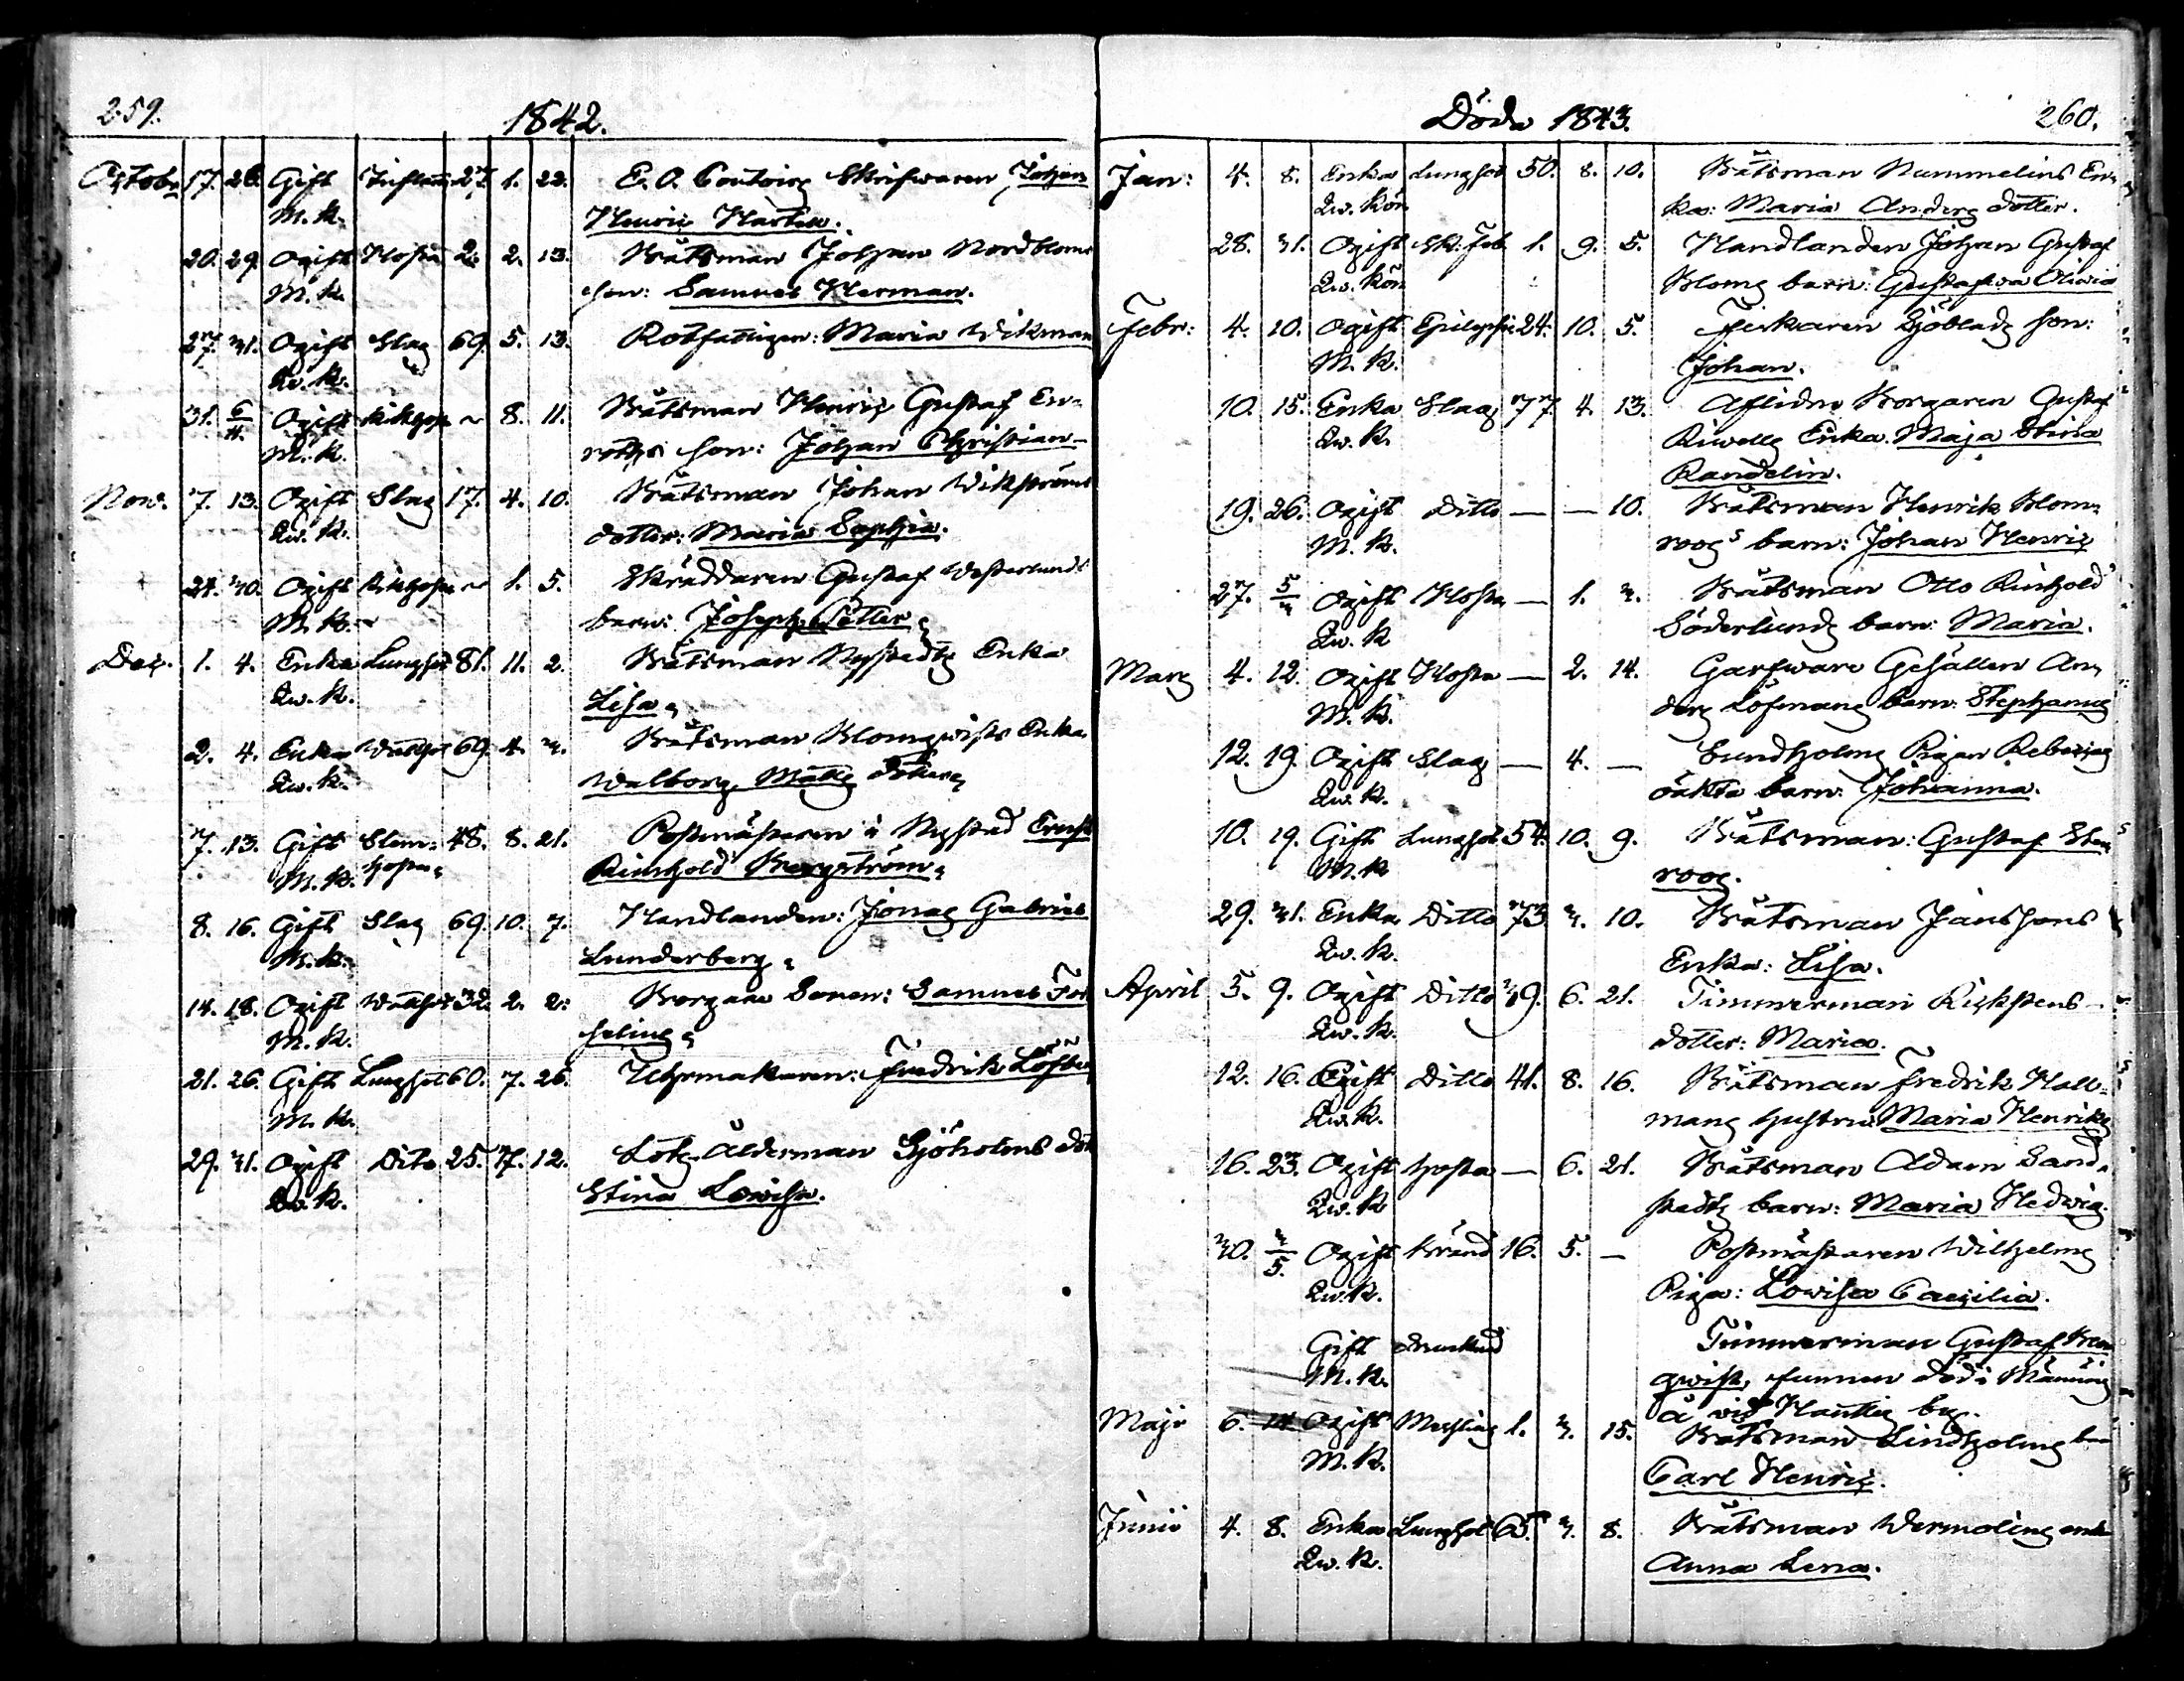 259.
1842.
Octobr 17. 26. Gift 27. 1. 22. E. O. Contoirs Skrifwaren Johan
M. K. Henric
20. 29. Ogift Hosta 2. 2. 13. Båtsman Johan Nordbloms
M. K. son: Samuel Herman.
27. 31. Ogift Slag 69. 5. 13. Rotfattigen: Maria Wikman
Qv. K.
31. 6/11. Ogift Kikhosta ~ 8. 11. Båtsman Henric Gustaf En-
M. K. son: Johan Christian
Nov. 7. 13. Ogift Slag 17. 4. 10. Båtsman Johan Wikströms
Qv. K. dotter: Maria Sophia.
24. 30. Ogift Kikhosta ~ 1. 5. Skräddaren Gustaf Westerlunds
M. K. barn: Joseph Petter
Dec. 1. 4. Enka Lungsot 81. 11. 2. Båtsman Nystedts Enka
Qv. K. Lisa
2. 4. Enka 69. 4. 3. Båtsman Blomqvists Enka
Qv. K. Walborg Matts dotter
7. 13. Gift 48. 8. 21. Postmästaren i Nystad Ernst
M. K. Reinhold Bergström
8. 16. Gift Slag 69. 10. 7. Handlanden: Jonas Gabriel
M. K. Lunderberg
14. 18. Ogift 32. 2. 2. Borgare Sonen: Samuel For
M. K. selius
21. 26. Gift Lungsot 60. 7. 26. Uhrmakaren: Fredrik
M. K.
29. 31. Ogift Dito 25. 7. 12. Lots Ålderman Sjöholms dot
Qv. K. Stina Lowisa.
Döda 1843.
260.
Jan: 4. 8. Enka Lungsot 50. 8. 10. Båtsman Nummelins En-
Qv. Kön ka: Maria Anders dotter.
28. 31. Ogift Sk: Feb. 1. 9. 5. Handlanden Johan Gustaf
Qv. Kön Bloms barn: Gustafva Olivia
Febr: 4. 10. Ogift Epilepsie 24. 10. 5. Fiskaren Sjöblads son:
M. K. Johan.
10. 15. Enka Slag 77. 4. 13. Aflidne Borgaren Gustaf
Qv. K. Enka. Maja Stina
Randelin.
19. 26. Ogift Ditto — — 10. Båtsman Henrik Blom-
M. K. roos barn: Johan Henric
27. 5/3 Ogift Hosta — 1. 3. Båtsman Otto Reinhold
Qv. K Söderlunds barn: Maria.
Mars 4. 12. Ogift Hosta — 2. 14. Garfware Gesällen An-
M. K. ders Löfmans barn: Stephanus
12. 19. Ogift Slag — 4. — Sundholms Pigan Rebeccas
Qv. K. oäkta barn: Johanna.
10. 19. Gift Lungsot 54. 10. 9. Båtsman: Gustaf Sten
M. K roos.
29. 31. Enka Ditto 73. 3. 10. Båtsman Janssons
Qv. K. Enka: Lisa.
April 5. 9. Ogift Ditto 39. 6. 21. Timmerman
Qv. K. dotter: Maria.
12. 16. Gift Ditto 41. 8. 16. Båtsman Fredrik Hall-
Qv. K. mans hustru Maria Henriks
16. 23. Ogift hosta — 6. 21. Båtsman Adam Sand-
Qv. K stedts barn: Maria Hedwig.
30. 3/5. Ogift Bränd 16. 5. — Postmästaren Wilhelms
Qv. K. Piga: Lowisa Caecilia.
Gift drunknad Timmerman Gustaf
M. K. qwist, funnen död i
å vid by.
Maji 6. 14. Ogift Messling 1. 3. 15. Båtsman Lindholms
M. K. Carl Henric.
Junii 4. 8. Enka Lungsot 65. 3. 8. Båtsman Wermelins enka
Qv. K. Anna Lena.